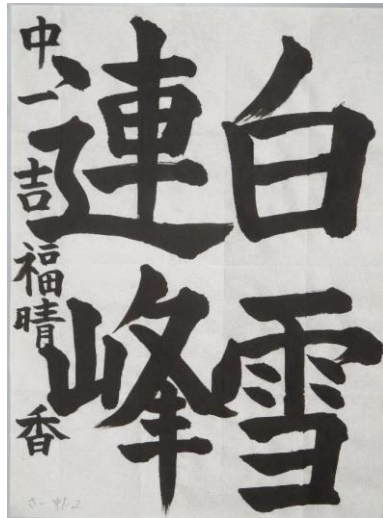 白雪
連峰
中一 吉福晴香